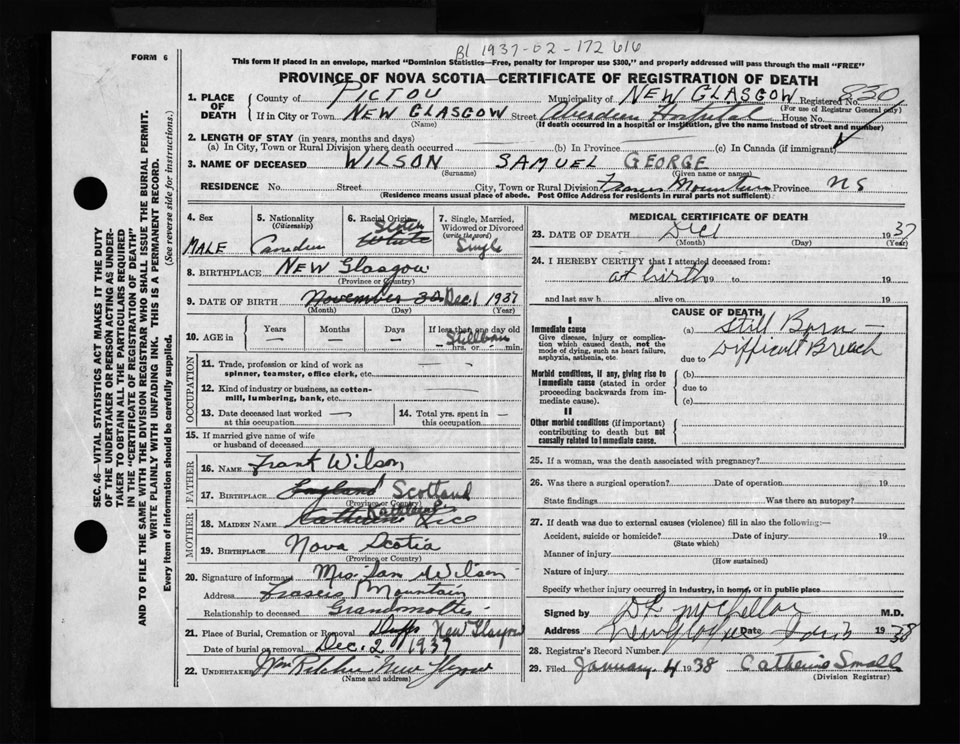 B1 1937-02-172616
FORM 6
This form if placed in an envelope, marked "Dominion Statistics—Free, penalty for improper use $300," and properly addressed will pass through the mail "FREE"
PROVINCE OF NOVA SCOTIA—CERTIFICATE OF REGISTRATION OF DEATH
1. PLACE OF DEATH
County of PICTOU Municipality of NEW GLASGOW Registered No. 830
(For use of Registrar General only)
If in City or Town NEW GLASGOW Street Aberdeen Hospital House No.
(Name) (If death occurred in a hospital or institution, give the name instead of street and number)
2. LENGTH OF STAY (in years, months and days)
(a) In City, Town or Rural Division where death occurred (b) In Province (c) In Canada (if immigrant)
3. NAME OF DECEASED WILSON SAMUEL GEORGE
(Surname) (Given name or names)
RESIDENCE No. Street City, Town or Rural Division Frasers Mountain Province NS
(Residence means usual place of abode. Post Office Address for residents in rural parts not sufficient)
4. Sex
MALE
5. Nationality
(Citizenship)
Canadian
6. Racial Origin
White
7. Single, Married, Widowed or Divorced
(write the word)
Single
8. BIRTHPLACE NEW Glasgow
(Province or Country)
9. DATE OF BIRTH November 30 Dec. 1 1937
(Month) (Day) (Year)
10. AGE in
Years
Months
Days
If less than one day old
Stillborn
hrs. or min.
OCCUPATION
11. Trade, profession or kind of work as spinner, teamster, office clerk, etc.
12. Kind of industry or business, as cotton-mill, lumbering, bank, etc.
13. Date deceased last worked at this occupation
14. Total yrs. spent in this occupation
15. If married give name of wife or husband of deceased
FATHER
16. NAME Frank Wilson
17. BIRTHPLACE England Scotland
(Province or Country)
MOTHER
18. MAIDEN NAME Catherine
19. BIRTHPLACE Nova Scotia
(Province or Country)
20. Signature of informant Mrs. Dan Wilson
Address Frasers Mountain
Relationship to deceased Grandmother
21. Place of Burial, Cremation or Removal Duffs New Glasgow
Date of burial or removal Dec. 2 1937
22. UNDERTAKER New Glasgow
(Name and address)
MEDICAL CERTIFICATE OF DEATH
23. DATE OF DEATH Dec 1 1937
(Month) (Day) (Year)
24. I HEREBY CERTIFY that I attended deceased from:
at birth 19 to 19
and last saw h alive on 19
CAUSE OF DEATH
I
Immediate cause
Give disease, injury or complication which caused death, not the mode of dying, such as heart failure, asphyxia, asthenia, etc.
(a) Still Born
due to Difficult Breach
Morbid conditions, if any, giving rise to immediate cause (stated in order proceeding backwards from immediate cause).
(b)
due to
(c)
II
Other morbid conditions (if important) contributing to death but not causally related to immediate cause.
25. If a woman, was the death associated with pregnancy?
26. Was there a surgical operation? Date of operation 19
State findings Was there an autopsy?
27. If death was due to external causes (violence) fill in also the following:—
Accident, suicide or homicide? Date of injury 19
(State which)
Manner of injury
(How sustained)
Nature of injury
Specify whether injury occurred in Industry, in home, or in public place
Signed by D L McKellar M.D.
Address New Glasgow Date Jan 3 1938
28. Registrar's Record Number
29. Filed January 4 1938 Catherine Small
(Division Registrar)
SEC. 46—VITAL STATISTICS ACT MAKES IT THE DUTY OF THE UNDERTAKER OR PERSON ACTING AS UNDERTAKER TO OBTAIN ALL THE PARTICULARS REQUIRED IN THE "CERTIFICATE OF REGISTRATION OF DEATH" AND TO FILE THE SAME WITH THE DIVISION REGISTRAR WHO SHALL ISSUE THE BURIAL PERMIT.
WRITE PLAINLY WITH UNFADING INK. THIS IS A PERMANENT RECORD.
Every item of information should be carefully supplied. (See reverse side for instructions.)